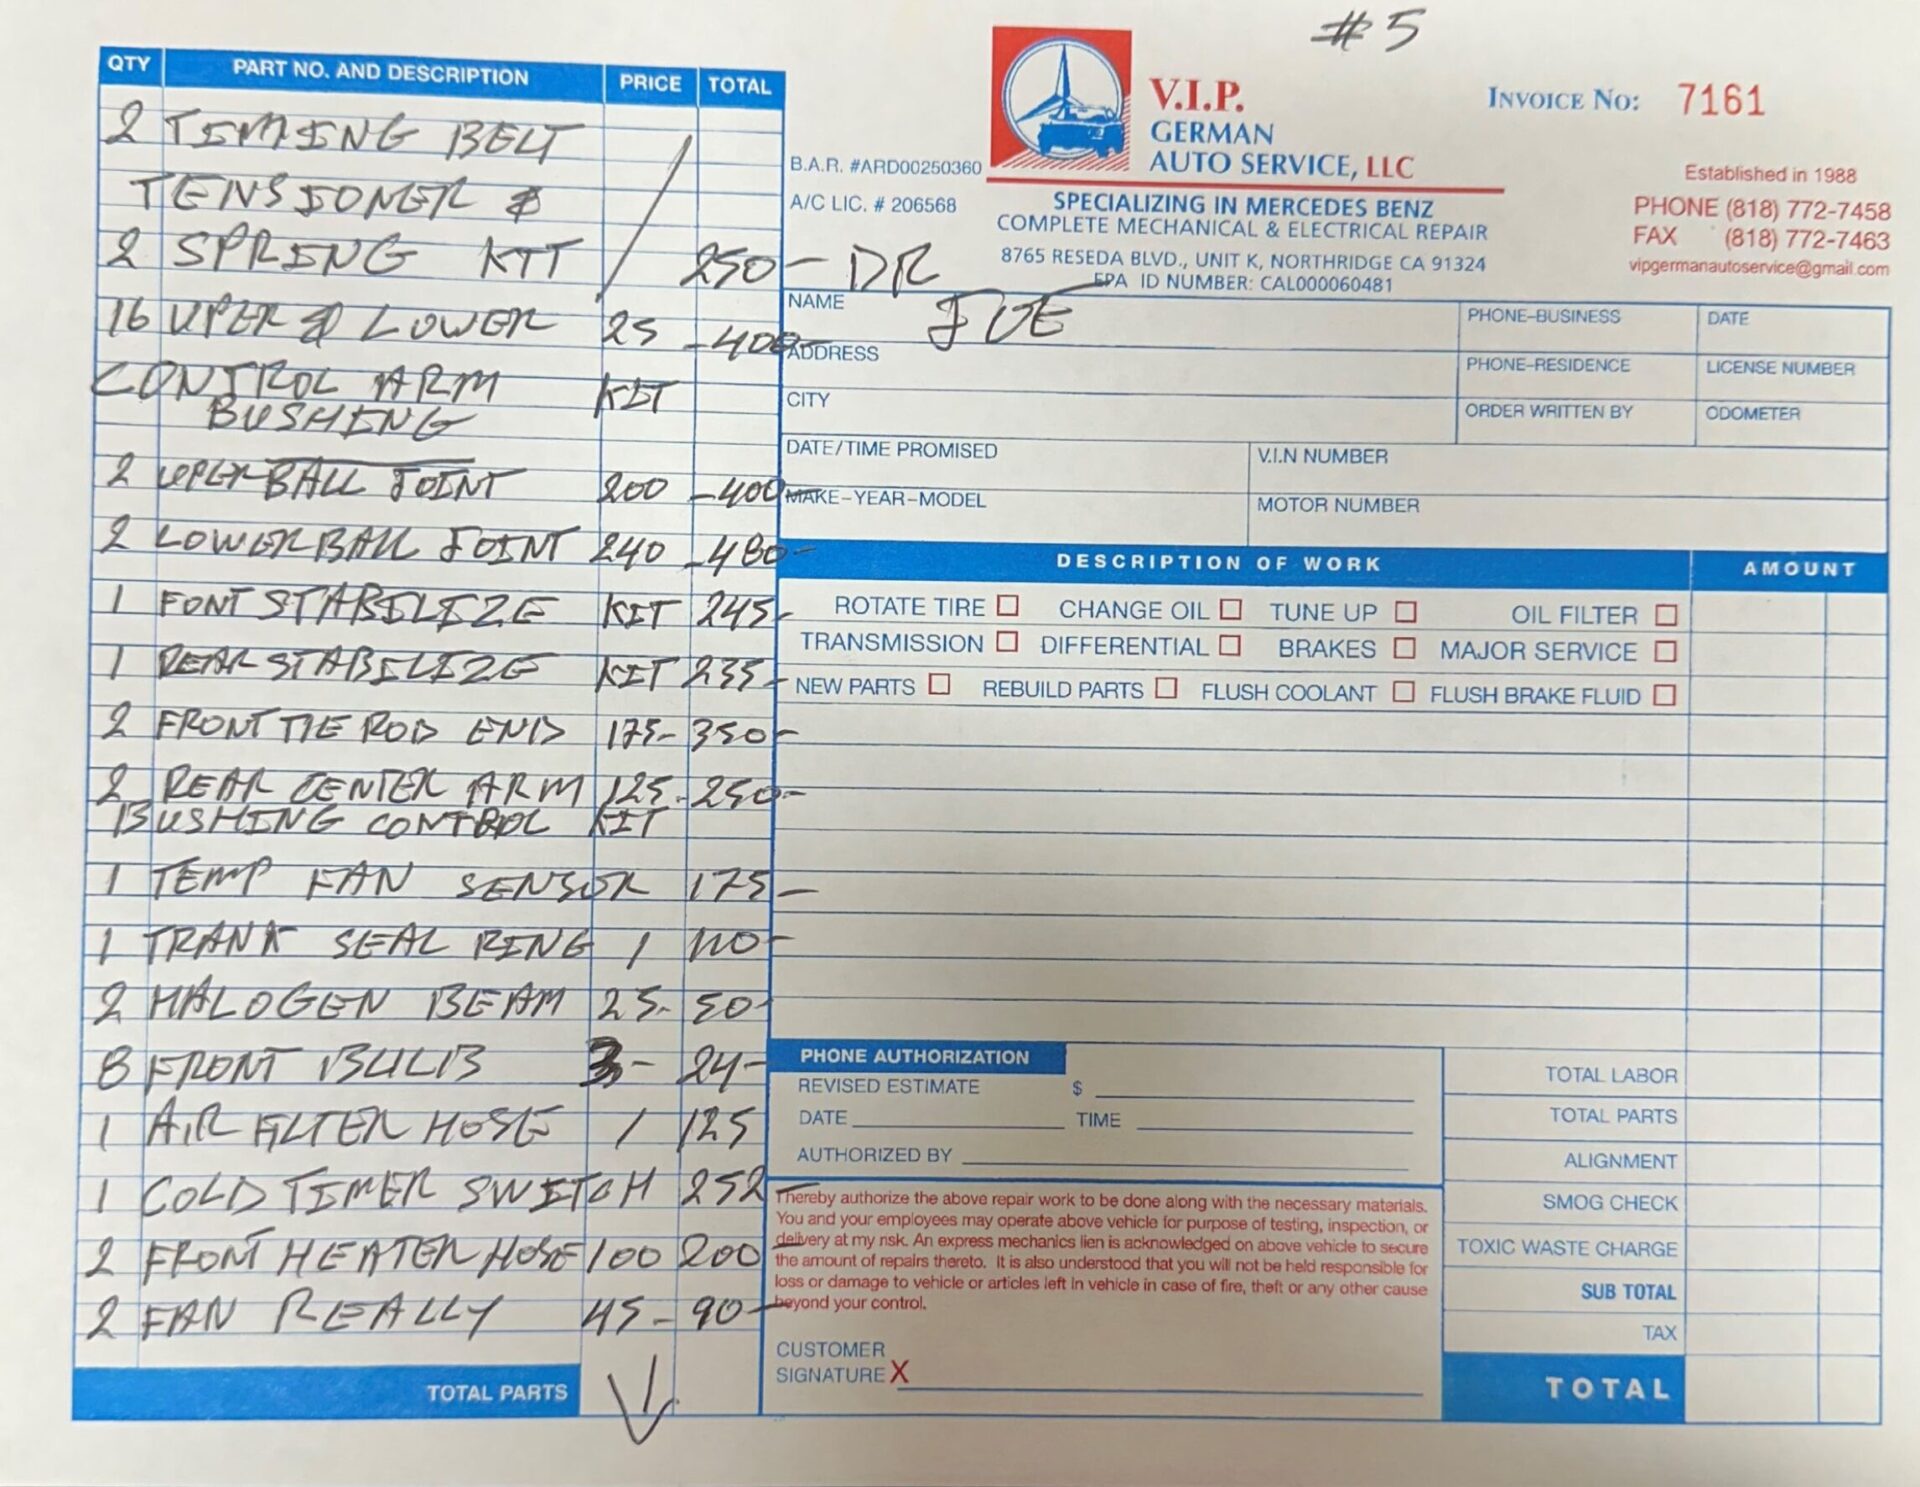 #5
QTY PART NO. AND DESCRIPTION PRICE TOTAL
2 TIMING BELT
TENSIONER &
2 SPRING KIT / 250-
16 UPER & LOWER 25 -400-
CONTROL ARM KIT
BUSHING
2 UPER BALL JOINT 200 -400-
2 LOWER BALL JOINT 240 -480-
1 FONT STABILIZE KIT 245-
1 REAR STABILIZE KIT 235-
2 FRONT TIE ROD END 175- 350-
2 REAR CENTER ARM 125- 250-
BUSHING CONTROL KIT
1 TEMP FAN SENSOR 175-
1 TRANK SEAL RING / 110-
2 HALOGEN BEAM 25- 50-
8 FRONT BULB 3- 24-
1 AIR FILTER HOSE / 125
1 COLD TIMER SWITCH 252-
2 FRONT HEATER HOSE 100 200-
2 FAN REALLY 45- 90-
TOTAL PARTS
V.I.P.
GERMAN
AUTO SERVICE, LLC
B.A.R. #ARD00250360
A/C LIC. # 206568
SPECIALIZING IN MERCEDES BENZ
COMPLETE MECHANICAL & ELECTRICAL REPAIR
8765 RESEDA BLVD., UNIT K, NORTHRIDGE CA 91324
EPA ID NUMBER: CAL000060481
INVOICE NO: 7161
Established in 1988
PHONE (818) 772-7458
FAX (818) 772-7463
vipgermanautoservice@gmail.com
DR
NAME JOE PHONE-BUSINESS DATE
ADDRESS PHONE-RESIDENCE LICENSE NUMBER
CITY ORDER WRITTEN BY ODOMETER
DATE/TIME PROMISED V.I.N NUMBER
MAKE-YEAR-MODEL MOTOR NUMBER
DESCRIPTION OF WORK AMOUNT
ROTATE TIRE CHANGE OIL TUNE UP OIL FILTER
TRANSMISSION DIFFERENTIAL BRAKES MAJOR SERVICE
NEW PARTS REBUILD PARTS FLUSH COOLANT FLUSH BRAKE FLUID
PHONE AUTHORIZATION
REVISED ESTIMATE $
DATE TIME
AUTHORIZED BY
I hereby authorize the above repair work to be done along with the necessary materials.
You and your employees may operate above vehicle for purpose of testing, inspection, or
delivery at my risk. An express mechanics lien is acknowledged on above vehicle to secure
the amount of repairs thereto. It is also understood that you will not be held responsible for
loss or damage to vehicle or articles left in vehicle in case of fire, theft or any other cause
beyond your control.
CUSTOMER
SIGNATURE X
TOTAL LABOR
TOTAL PARTS
ALIGNMENT
SMOG CHECK
TOXIC WASTE CHARGE
SUB TOTAL
TAX
TOTAL